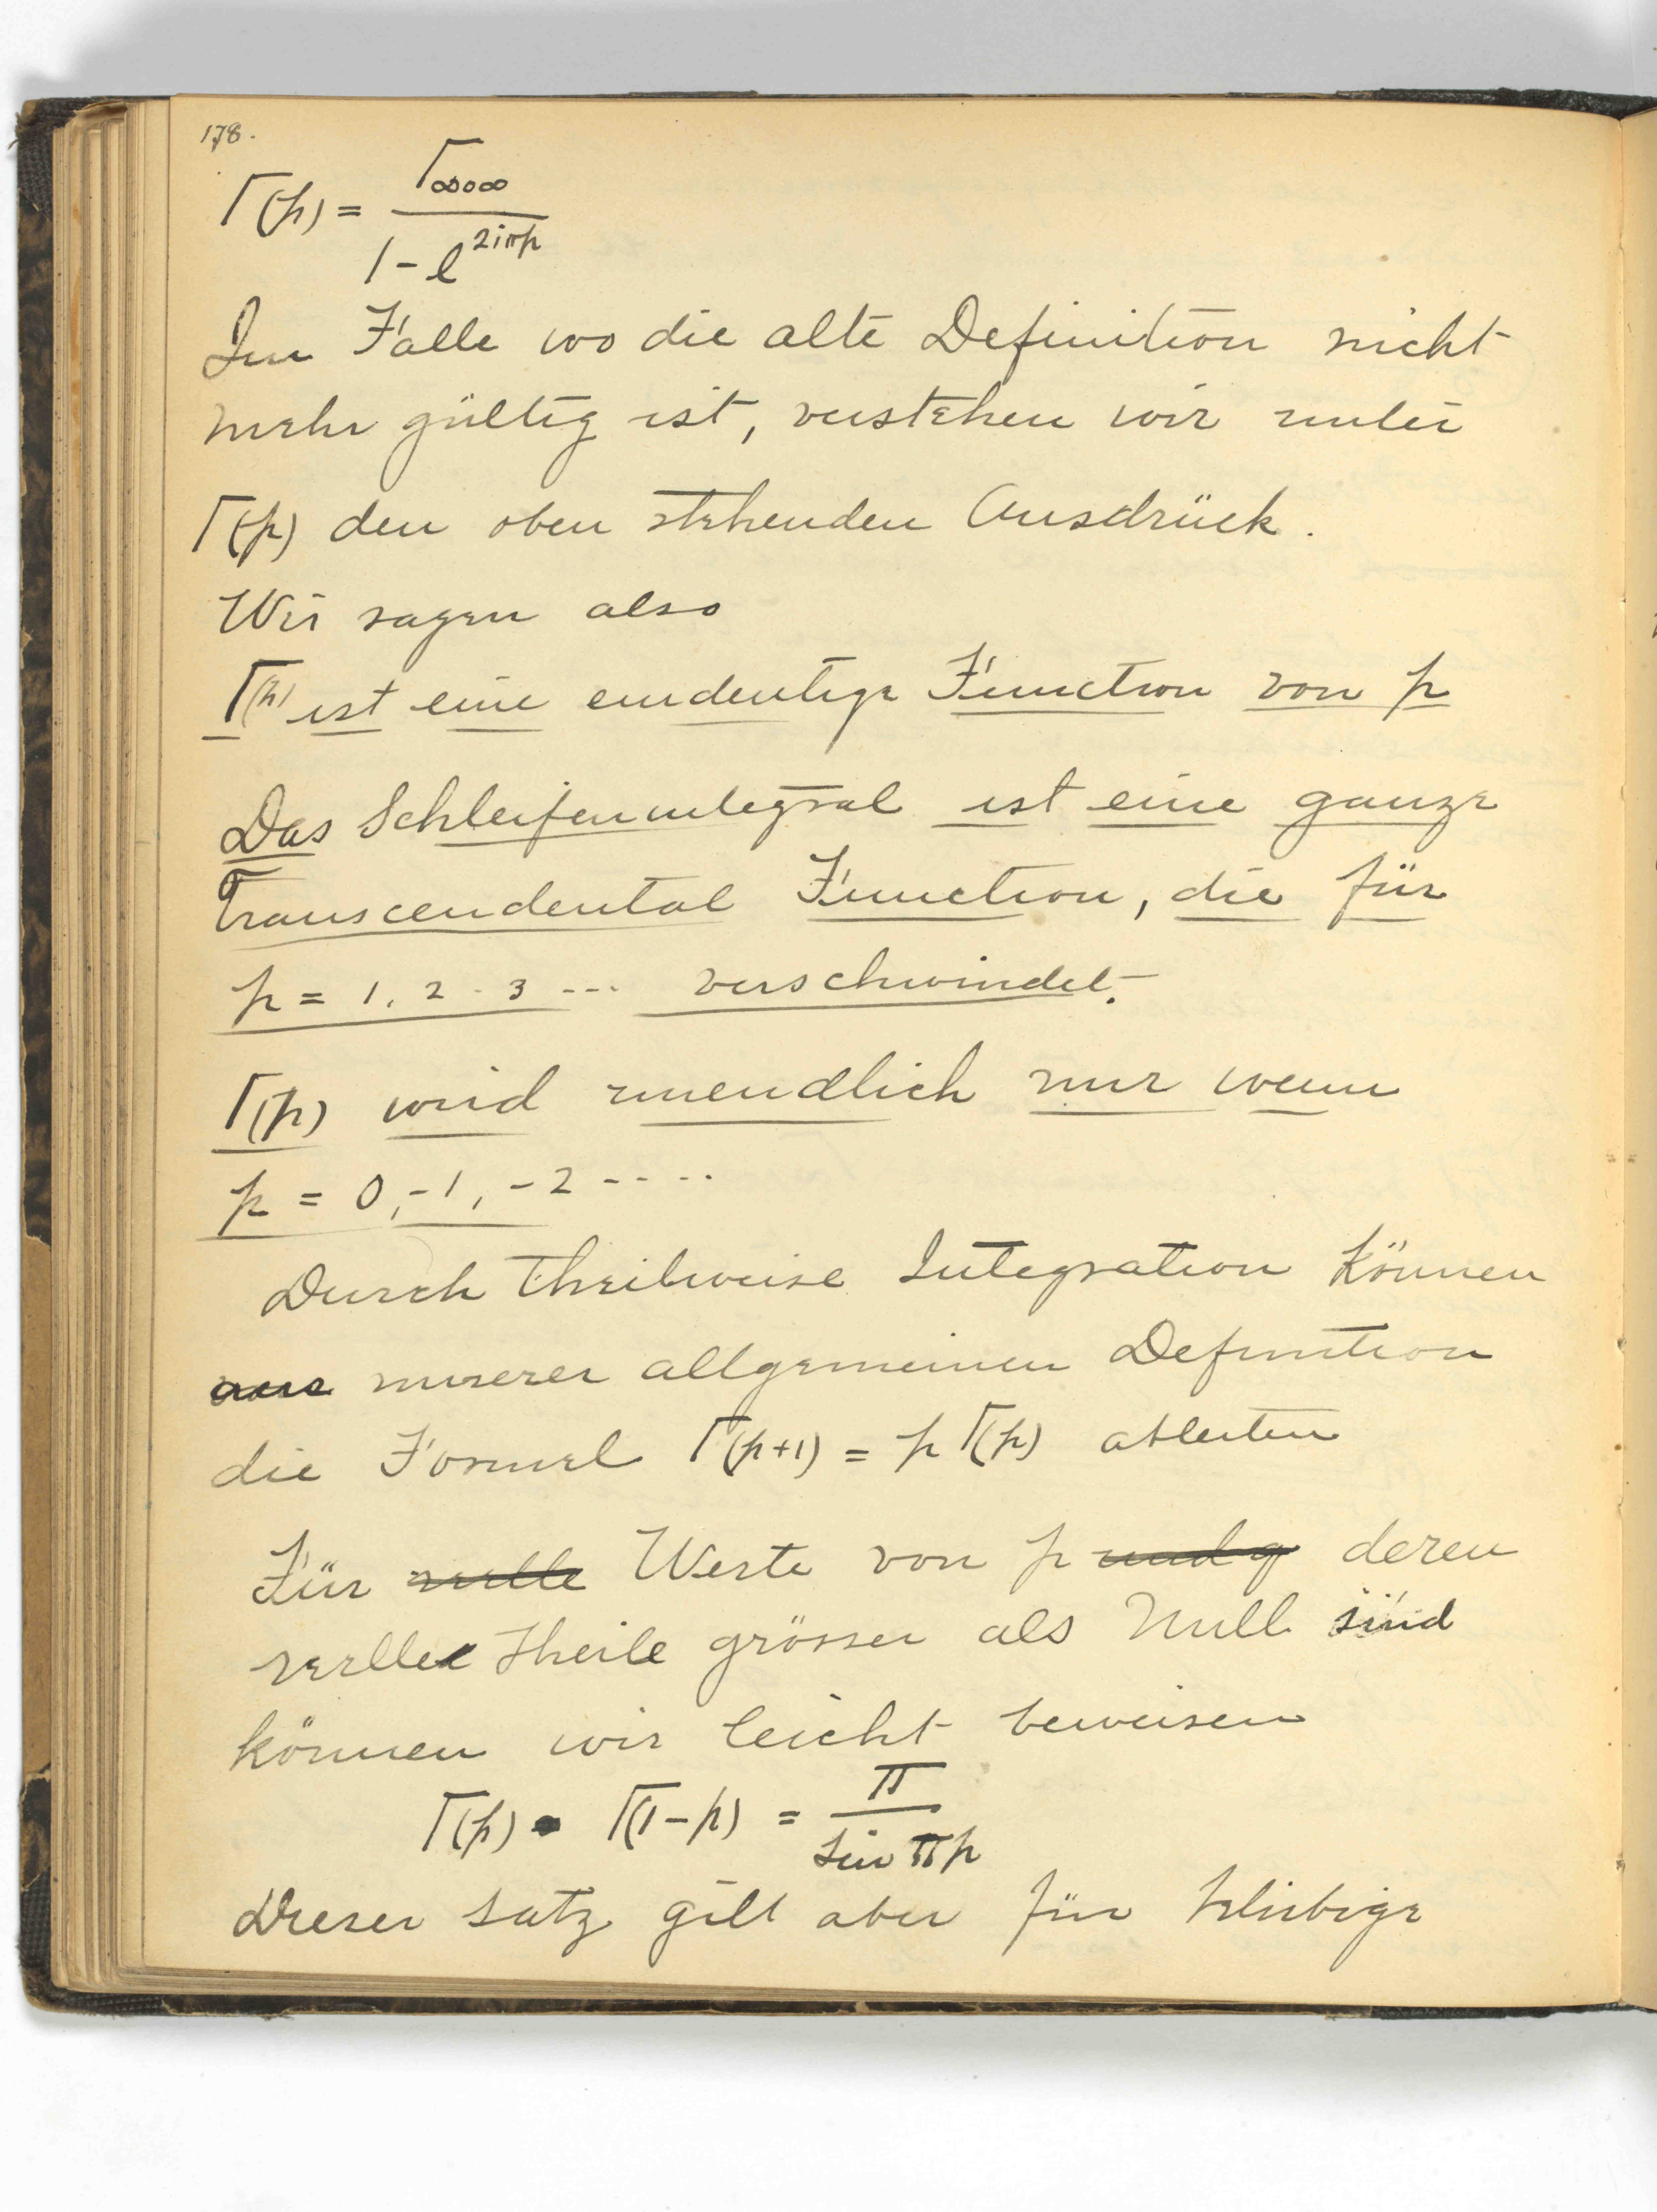 178.
Γ(p) = Γ∞0∞ / 1 - e^{2iπp}
Im Falle wo die alte Definition nicht
mehr gültig ist, verstehen wir unter
Γ(p) den oben stehenden Ausdrück.
Wir sagen also
Γ(p) ist eine eindeutige Function von p
Das Schleifenintegral ist eine ganze
Transcendental Function, die für
p = 1, 2 - 3 --- verschwindet.
Γ(p) wird unendlich nur wenn
p = 0, -1, -2 - - - -
Durch theilweise Integration können
aus unserer allgemeinen Definition
die Formel Γ(p+1) = p Γ(p) ableiten
Für reelle Werte von p und q deren
reelle Theile grösser als Null sind
können wir leicht beweisen
Γ(p) • Γ(1-p) = π / sin πp
Dieser Satz gilt aber für beliebige